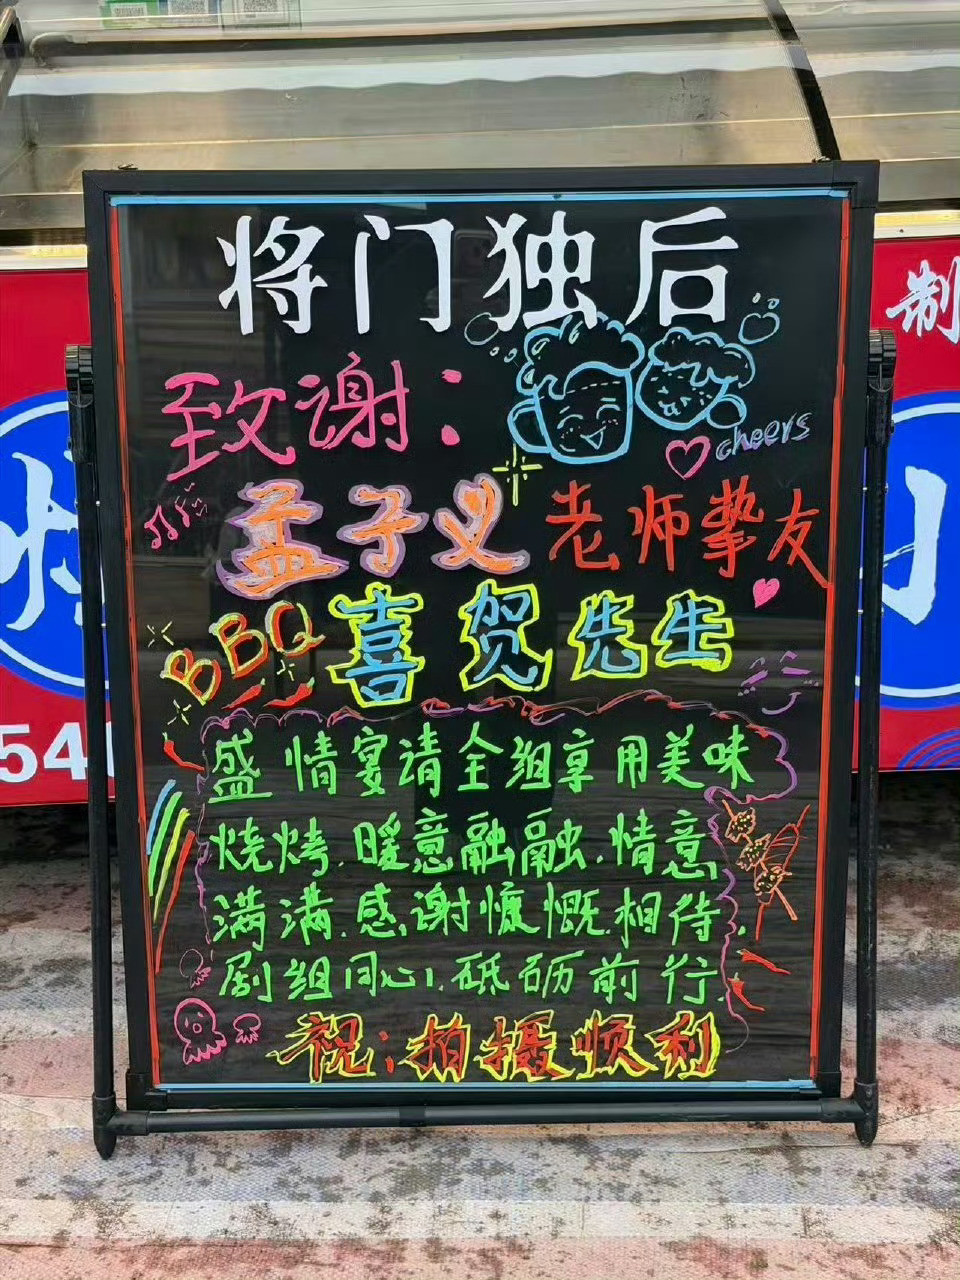 将门独后
致谢:
cheers
孟子义老师挚友
BBQ喜贺先生
盛情宴请全组享用美味
烧烤.暖意融融.情意
满满.感谢慷慨相待.
剧组同心.砥砺前行.
祝:拍摄顺利
制
54